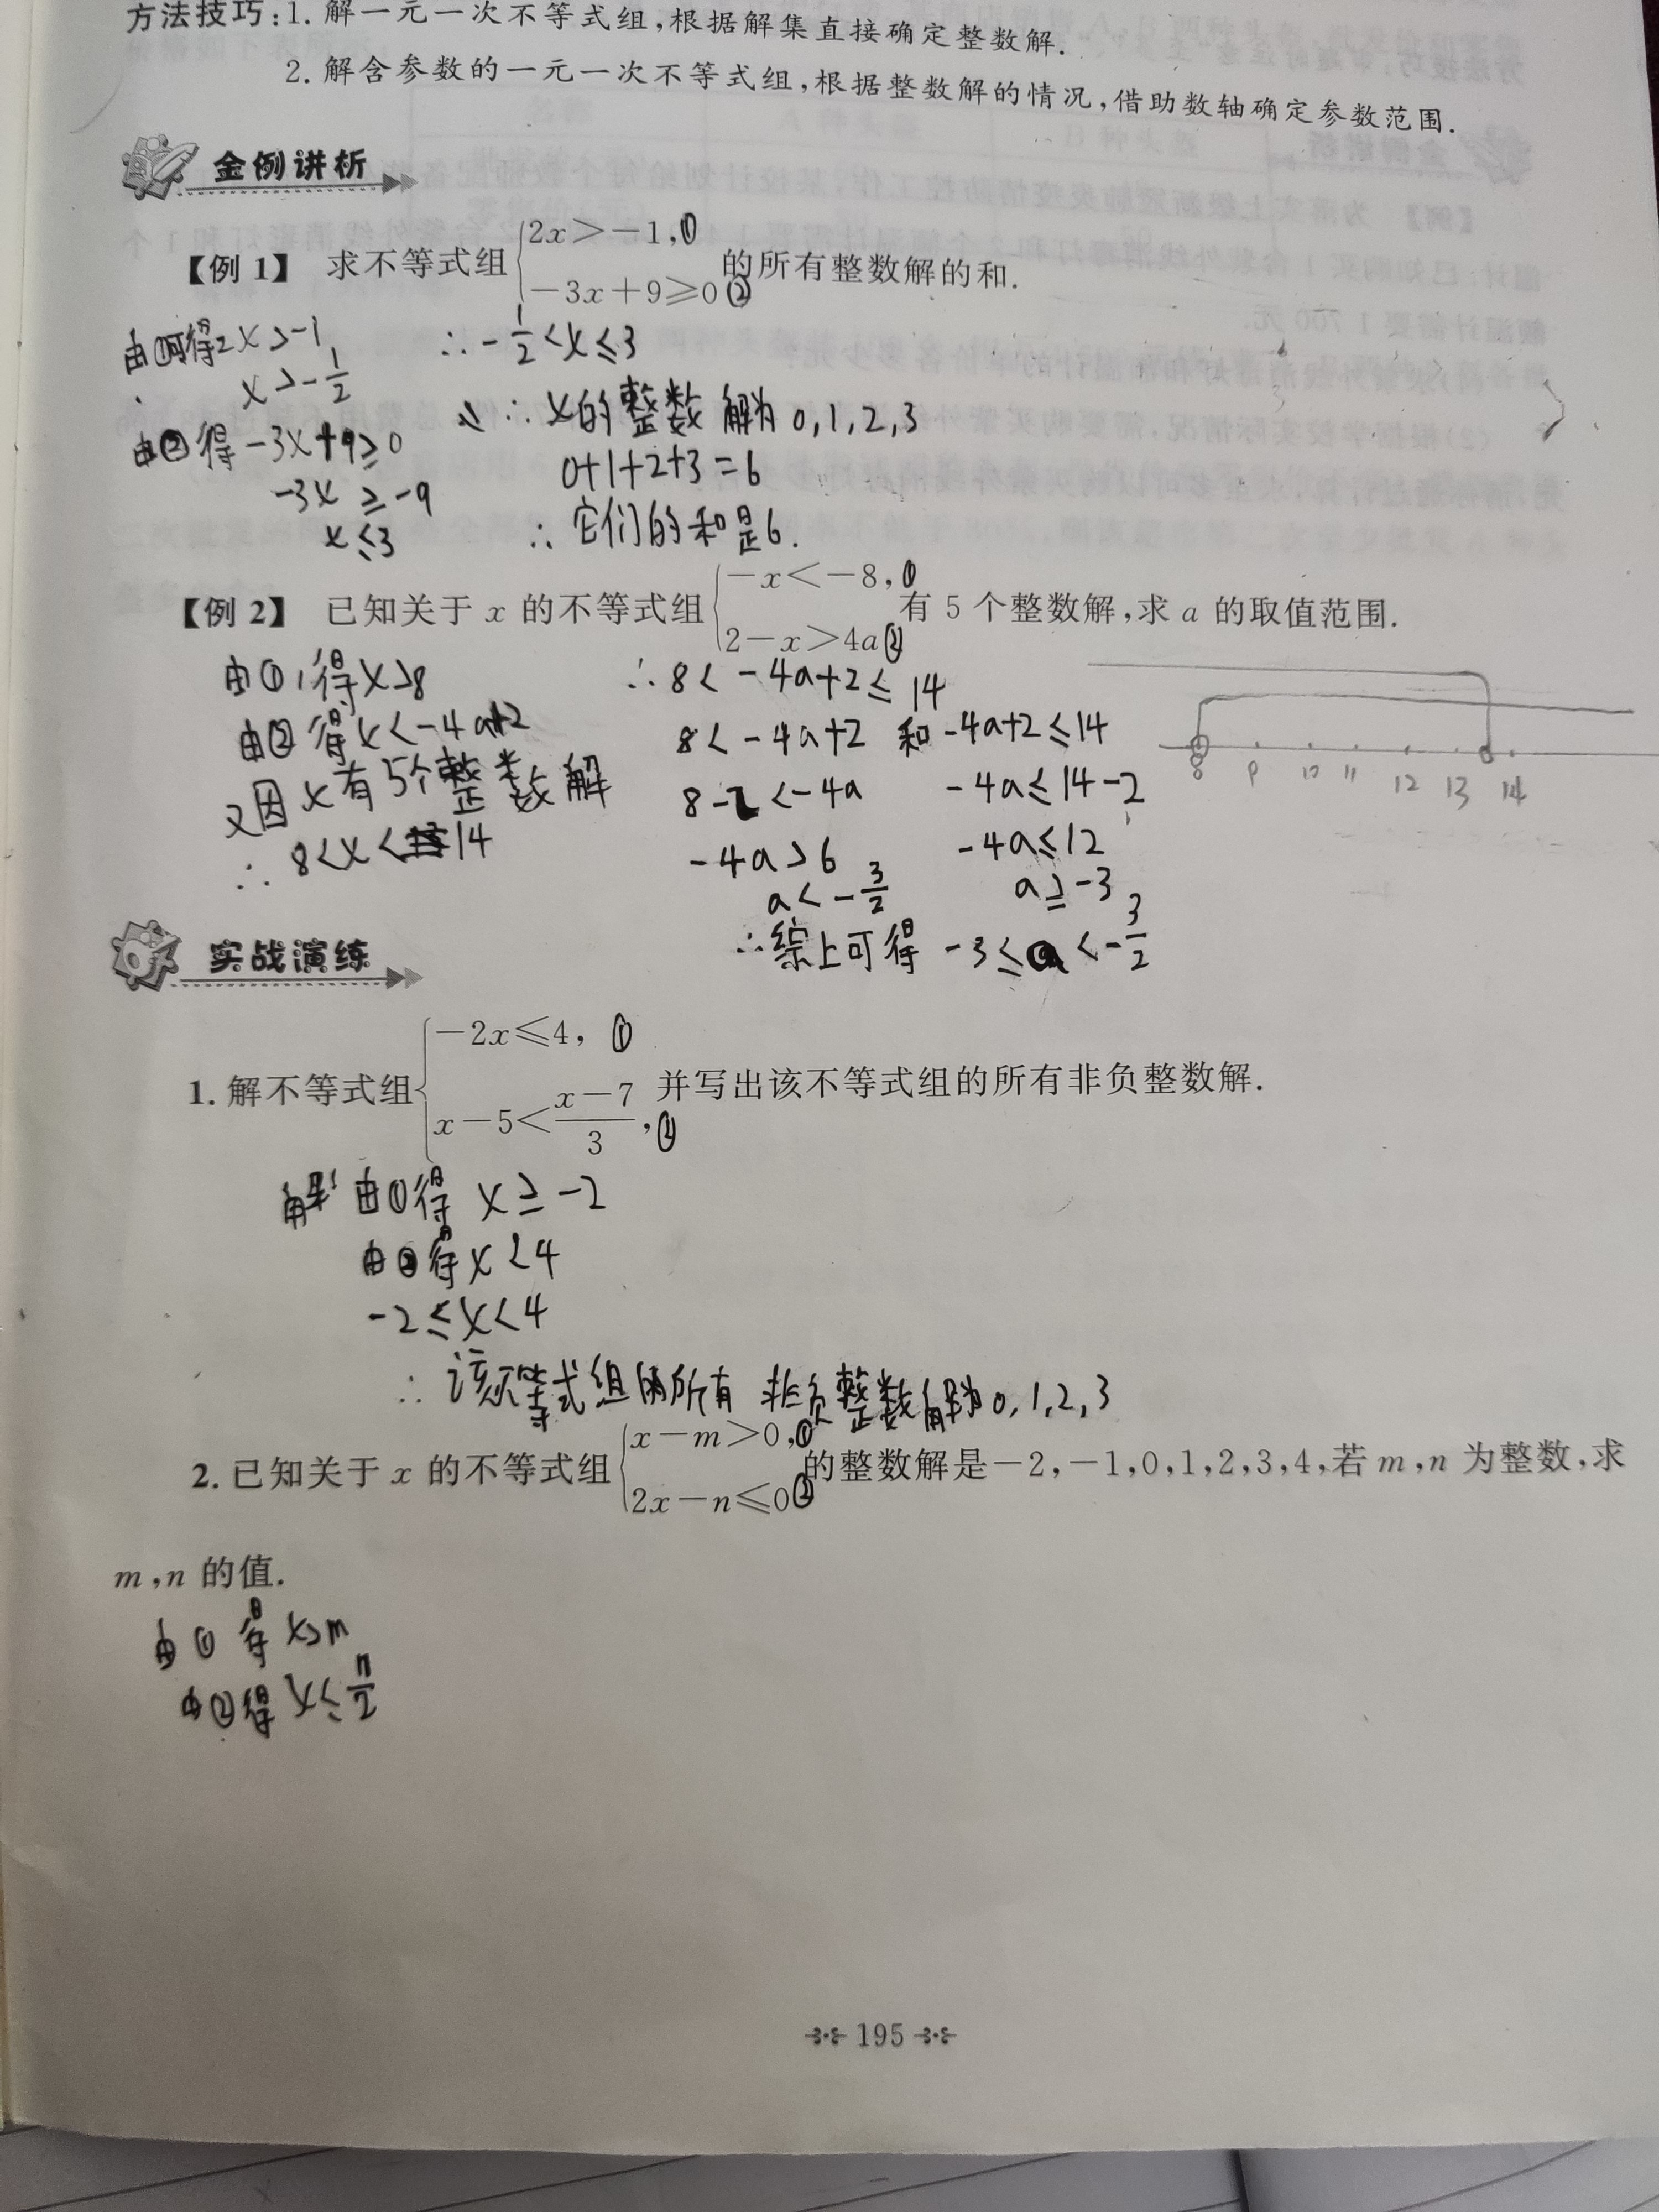 方法技巧:1. 解一元一次不等式组,根据解集直接确定整数解.
2. 解含参数的一元一次不等式组,根据整数解的情况,借助数轴确定参数范围.
金例讲析
【例 1】 求不等式组{2x>-1,① -3x+9≥0② 的所有整数解的和.
由①可得2x>-1 ∴-1/2<x≤3
x>-1/2
∴x的整数解为0,1,2,3
由②得-3x+9≥0
0+1+2+3=6
-3x≥-9
x≤3 ∴它们的和是6.
【例 2】 已知关于 x 的不等式组{-x<-8,① 2-x>4a② 有 5 个整数解,求 a 的取值范围.
由①,得x>8 ∴8<-4a+2≤14
由②得x<-4a+2 8<-4a+2 和-4a+2≤14
又因x有5个整数解 8-2<-4a -4a≤14-2
∴8<x<14 -4a>6 -4a≤12
a<-3/2 a≥-3
∴综上可得 -3≤a<-3/2
8 9 10 11 12 13 14
实战演练
1. 解不等式组{-2x≤4, ① x-5<(x-7)/3,② 并写出该不等式组的所有非负整数解.
解: 由①得 x≥-2
由②得x<4
-2≤x<4
∴该不等式组的所有非负整数解为0,1,2,3
2. 已知关于 x 的不等式组{x-m>0,① 2x-n≤0② 的整数解是-2,-1,0,1,2,3,4,若 m,n 为整数,求
m,n 的值.
由①得x>m
由②得x≤n/2
195